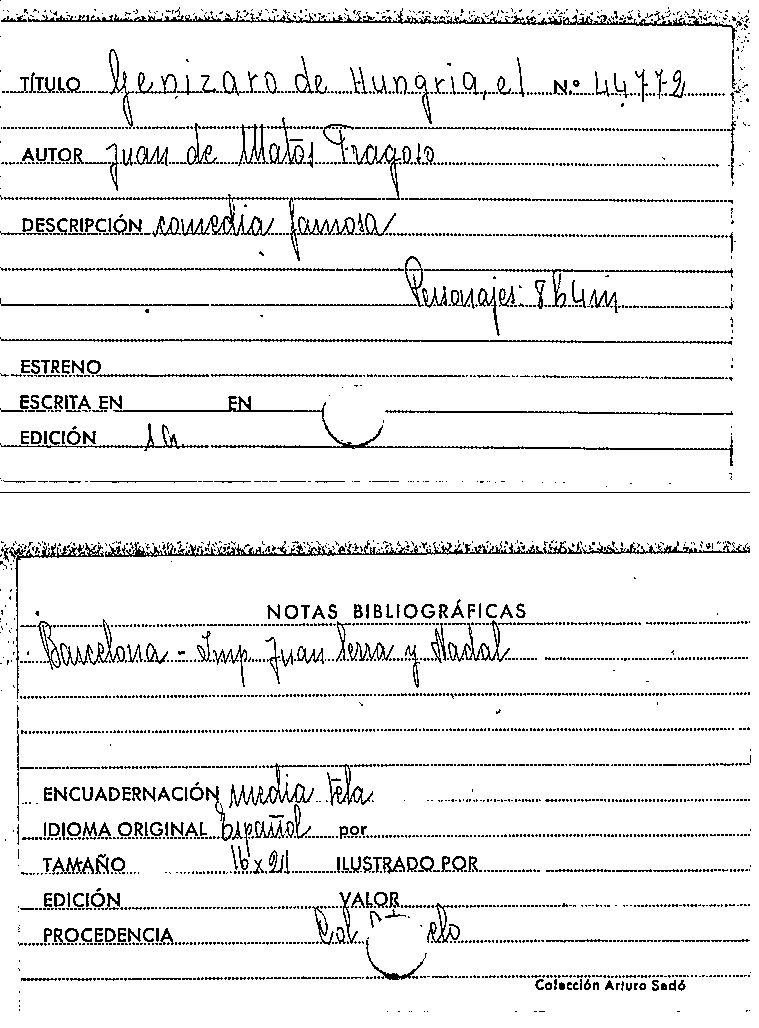 TÍTULO Genizaro de Hungria, el N.º 44772
AUTOR Juan de Matos Fragoso
DESCRIPCIÓN comedia famosa
Personajes: 8 h 4 m
ESTRENO
ESCRITA EN EN
EDICIÓN
NOTAS BIBLIOGRÁFICAS
Barcelona - Imp. Juan Serra y Nadal
ENCUADERNACIÓN media tela
IDIOMA ORIGINAL Español por
TAMAÑO 16 x 21 ILUSTRADO POR
EDICIÓN VALOR
PROCEDENCIA Col
Colección Arturo Sedó